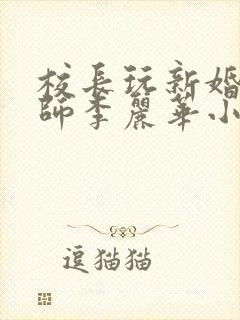 校長玩新婚
師李麗華小
逗猫猫